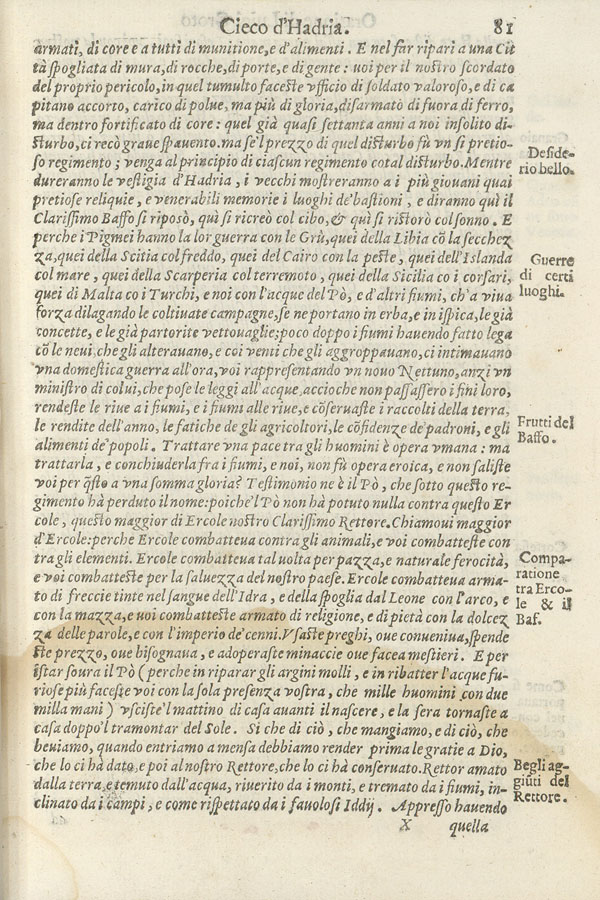 Cieco d'Hadria. 81
armati, di core e a tutti di munitione, e d'alimenti. E nel far ripari a una Cit
tà spogliata di mura, di rocche, di porte, e di gente: uoi per il nostro scordato
del proprio pericolo, in quel tumulto faceste vfficio di soldato valoroso, e di ca
pitano accorto, carico di polue, ma più di gloria, disarmato di fuora di ferro,
ma dentro fortificato di core: quel già quasi settanta anni a noi insolito di-
sturbo, ci recò graue spauento. ma se'l prezzo di quel disturbo fù vn si pretio-
so regimento; venga al principio di ciascun regimento cotal disturbo. Mentre
Deside-
rio bello.
dureranno le vestigia d'Hadria, i vecchi mostreranno a i più giouani quai
pretiose reliquie, e venerabili memorie i luoghi de' bastioni, e diranno quì il
Clarissimo Baffo si riposò, quì si ricreò col cibo, & quì si ristorò col sonno. E
perche i Pigmei hanno la lor guerra con le Grù, quei della Libia cō la secchez
za, quei della Scitia col freddo, quei del Cairo con la peste, quei dell'Islanda
Guerre
di certi
luoghi.
col mare, quei della Scarperia col terremoto, quei della Sicilia co i corsari,
quei di Malta co i Turchi, e noi con l'acque del Pò, e d'altri fiumi, ch'a viua
forza dilagando le coltiuate campagne, se ne portano in erba, e in ispica, le già
concette, e le già partorite vettouaglie; poco doppo i fiumi hauendo fatto lega
cō le neui, che gli alterauano, e coi venti che gli aggroppauano, ci intimauano
vna domestica guerra all'ora, voi rappresentando vn nouo Nettuno, anzi vn
ministro di colui, che pose le leggi all'acque, accioche non passassero i fini loro,
rendeste le riue a i fiumi, e i fiumi alle riue, e cōseruaste i raccolti della terra,
Frutti del
Baffo.
le rendite dell'anno, le fatiche de gli agricoltori, le cōfidenze de' padroni, e gli
alimenti de' popoli. Trattare vna pace tra gli huomini è opera vmana: ma
trattarla, e conchiuderla fra i fiumi, e noi, non fù opera eroica, e non saliste
voi per q̃sto a vna somma gloria? Testimonio ne è il Pò, che sotto questo re-
gimento hà perduto il nome: poiche'l Pò non hà potuto nulla contra questo Er
cole, questo maggior di Ercole nostro Clarissimo Rettore. Chiamoui maggior
d'Ercole: perche Ercole combatteua contra gli animali, e voi combatteste con
tra gli elementi. Ercole combatteua tal uolta per pazza, e naturale ferocità,
Compa-
ratione
tra Erco-
le & il
Baf.
e voi combatteste per la saluezza del nostro paese. Ercole combatteua arma-
to di freccie tinte nel sangue dell'Idra, e della spoglia dal Leone con l'arco, e
con la mazza, e uoi combatteste armato di religione, e di pietà con la dolcez
za delle parole, e con l'imperio de' cenni. Vsaste preghi, oue conueniua, spende
ste prezzo, oue bisognaua, e adoperaste minaccie oue facea mestieri. E per
istar soura il Pò (perche in riparar gli argini molli, e in ribatter l'acque fu-
riose più faceste voi con la sola presenza vostra, che mille huomini con due
milla mani) vsciste'l mattino di casa auanti il nascere, e la sera tornaste a
casa doppo'l tramontar del Sole. Si che di ciò, che mangiamo, e di ciò, che
beuiamo, quando entriamo a mensa debbiamo render prima le gratie a Dio,
che lo ci hà dato, e poi al nostro Rettore, che lo ci hà conseruato. Rettor amato
Begli ag-
giūti del
Rettore.
dalla terra, e temuto dall'acqua, riuerito da i monti, e tremato da i fiumi, in-
clinato da i campi, e come rispettato da i fauolosi Iddij. Appresso hauendo
X quella